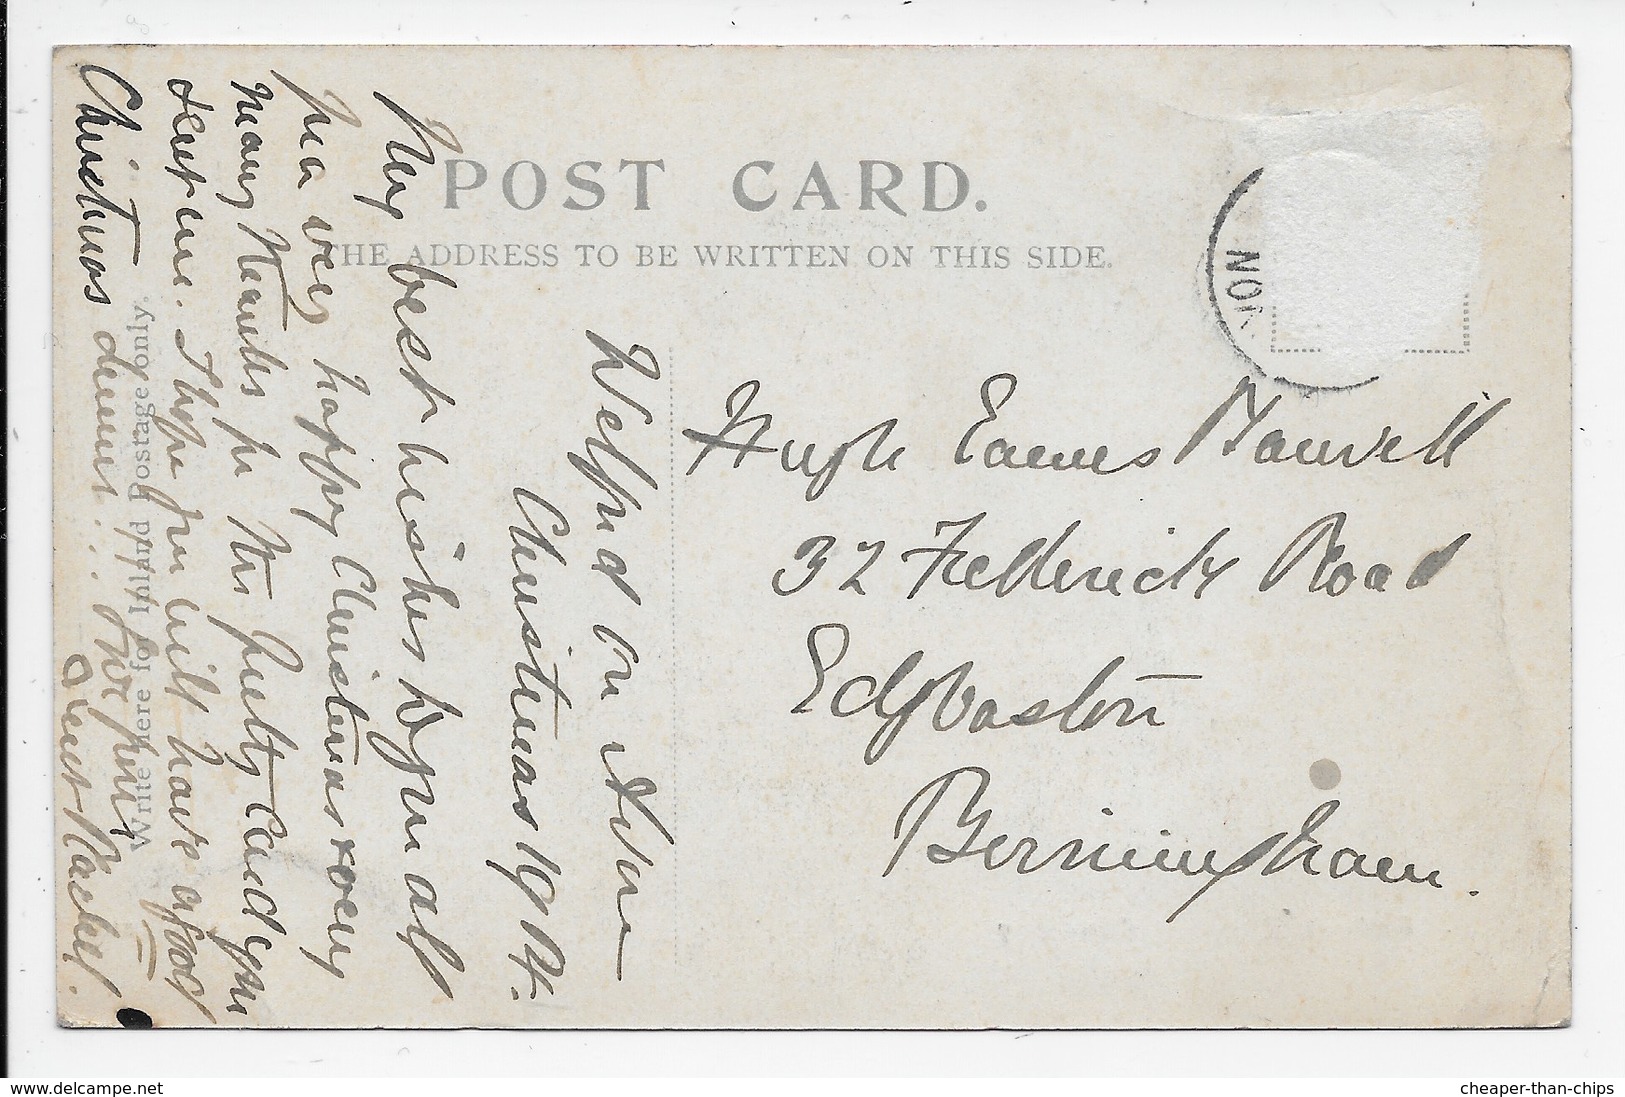 POST CARD.
THE ADDRESS TO BE WRITTEN ON THIS SIDE.
Write here for Inland Postage only.
NOR
Welford on Avon
Christmas 1914.
My best wishes to you all
for a very happy Christmas & very
many thanks for the pretty card you
sent me. I hope you will have a good
Christmas dinner!! 
Aunt Rachel.
Hugh Eames
32 Frederick Road
Edgbaston
Birmingham.
www.delcampe.net
cheaper-than-chips